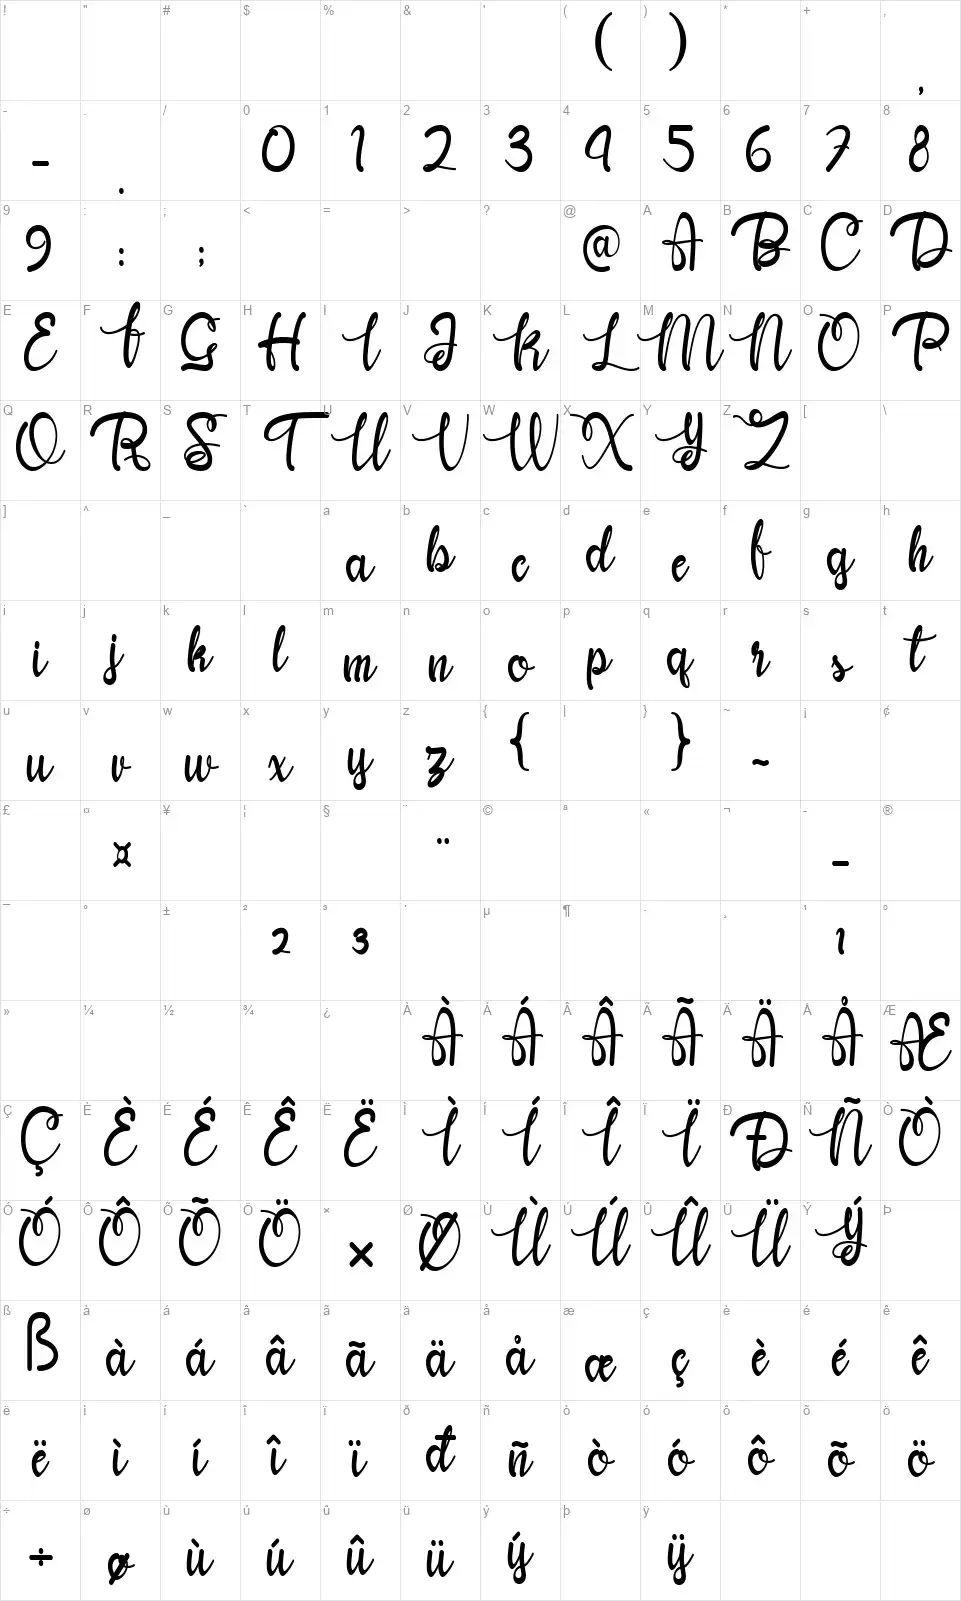 ! " # $ % & ' ( ) * + ,
( ) ,
- . / 0 1 2 3 4 5 6 7 8
- . 0 1 2 3 4 5 6 7 8
9 : ; < = > ? @ A B C D
9 : ; @ A B C D
E F G H I J K L M N O P
E F G H I J K L M N O P
Q R S T U V W X Y Z [ \
Q R S T U V W X Y Z
] ^ _ ` a b c d e f g h
a b c d e f g h
i j k l m n o p q r s t
i j k l m n o p q r s t
u v w x y z { | } ~ ¡ ¢
u v w x y z { } ~
£ ¤ ¥ ¦ § ¨ © ª « ¬ - ®
¤ ¨ -
¯ ° ± ² ³ ´ µ ¶ · ¸ ¹ º
² ³ ¹
» ¼ ½ ¾ ¿ À Á Â Ã Ä Å Æ
À Á Â Ã Ä Å Æ
Ç È É Ê Ë Ì Í Î Ï Ð Ñ Ò
Ç È É Ê Ë Ì Í Î Ï Ð Ñ Ò
Ó Ô Õ Ö × Ø Ù Ú Û Ü Ý Þ
Ó Ô Õ Ö × Ø Ù Ú Û Ü Ý
ß à á â ã ä å æ ç è é ê
ß à á â ã ä å æ ç è é ê
ë ì í î ï ð ñ ò ó ô õ ö
ë ì í î ï đ ñ ò ó ô õ ö
÷ ø ù ú û ü ý þ ÿ
÷ ø ù ú û ü ý ÿ